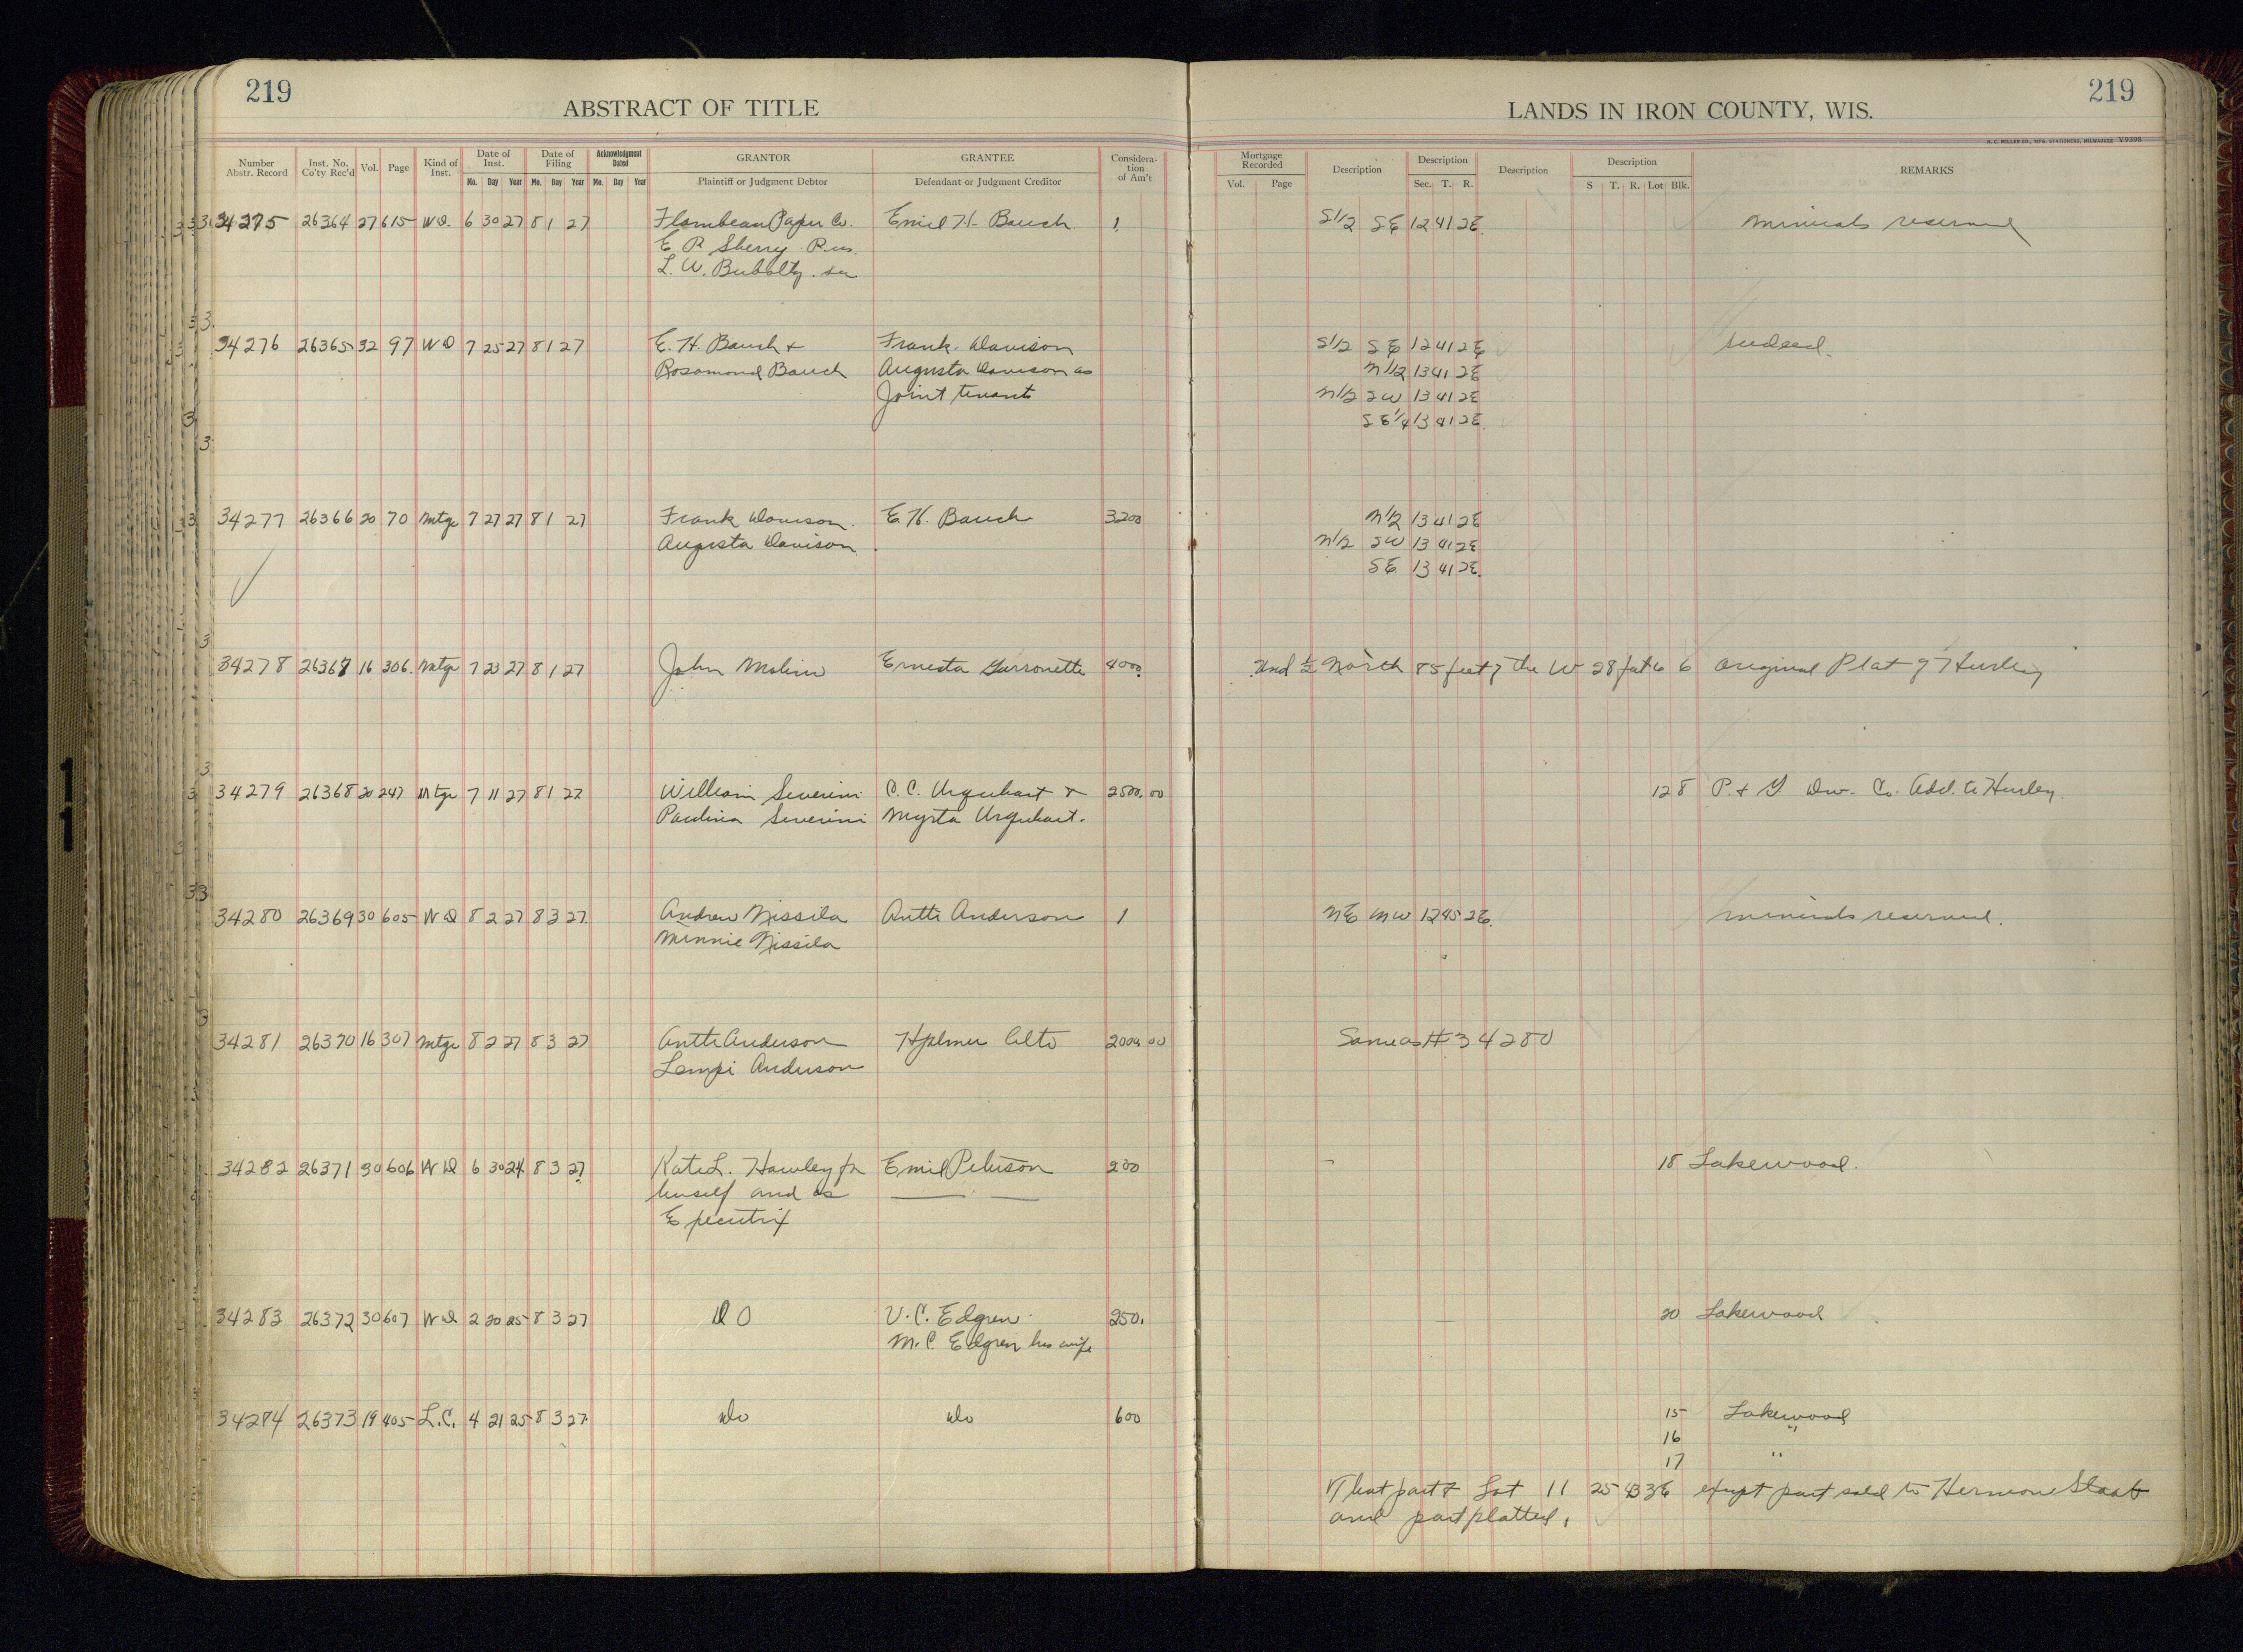 219
ABSTRACT OF TITLE
LANDS IN IRON COUNTY, WIS.
219
H. C. MILLER CO., MFG. STATIONERS, MILWAUKEE Y9398
Number Abstr. Record Inst. No. Co'ty Rec'd Vol. Page Kind of Inst. Date of Inst. Mo. Day Year Date of Filing Mo. Day Year Acknowledgment Dated Mo. Day Year GRANTOR Plaintiff or Judgment Debtor GRANTEE Defendant or Judgment Creditor Considera-tion of Am't Mortgage Recorded Vol. Page Description Description Sec. T. R. Description Description S T. R. Lot Blk. REMARKS
34275 26364 27 615 WD. 6 30 27 8 1 27 Flambeau Paper Co. Emil H. Bauch 1 S1/2 SE 12 41 2E. minerals reserved
E P. Sherry Pres.
L. W. Bubolty sec
34276 26365 32 97 WD 7 25 27 8 1 27 E. H. Bauch + Frank Davison S1/2 SE 12 41 2E
Rosamond Bauch Augusta Davison as N1/2 13 41 2E
Joint tenants N1/2 SW 13 41 2E
SE1/4 13 41 2E.
34277 26366 20 70 Mtge 7 27 27 8 1 27 Frank Davison. E. H. Bauch 3200 N1/2 13 41 2E
Augusta Davison N1/2 SW 13 41 2E
SE 13 41 2E.
34278 26367 16 306. Mtge 7 23 27 8 1 27 John Ernesta 4000. und 1/2 North 85 feet of the W 28 6 6 Original Plat of Hurley
34279 26368 20 247 Mtge 7 11 27 8 1 27 William Severini O. C. Urquhart & 2500.00 128 P. + G Dev. Co. Add. to Hurley.
Paulina Severini Myrta Urquhart.
34280 26369 30 605 WD 8 2 27 8 3 27. Andrew Nissila Antti Anderson 1 NE NW 12 45 2E. minerals reserved.
Minnie Nissila
34281 26370 16 307 Mtge 8 2 27 8 3 27 Antti Anderson Hjalmer Alto 2000.00 Same as #34280
Lempi Anderson
34282 26371 30 606 WD 6 30 24 8 3 27. Kate L. Hawley for Emil Peterson 200 18 Lakewood.
herself and as
Executrix
34283 26372 30 607 WD 2 20 25 8 3 27 DO V. C. Edgren. 250. 20 Lakewood
M. C. Edgren his wife
34284 26373 19 405 L.C. 4 21 25 8 3 27. Do Do 600 15 Lakewood
16 "
17 "
That part of Lot 11 25 43 3E except part sold to Hermon Staab
and part platted.